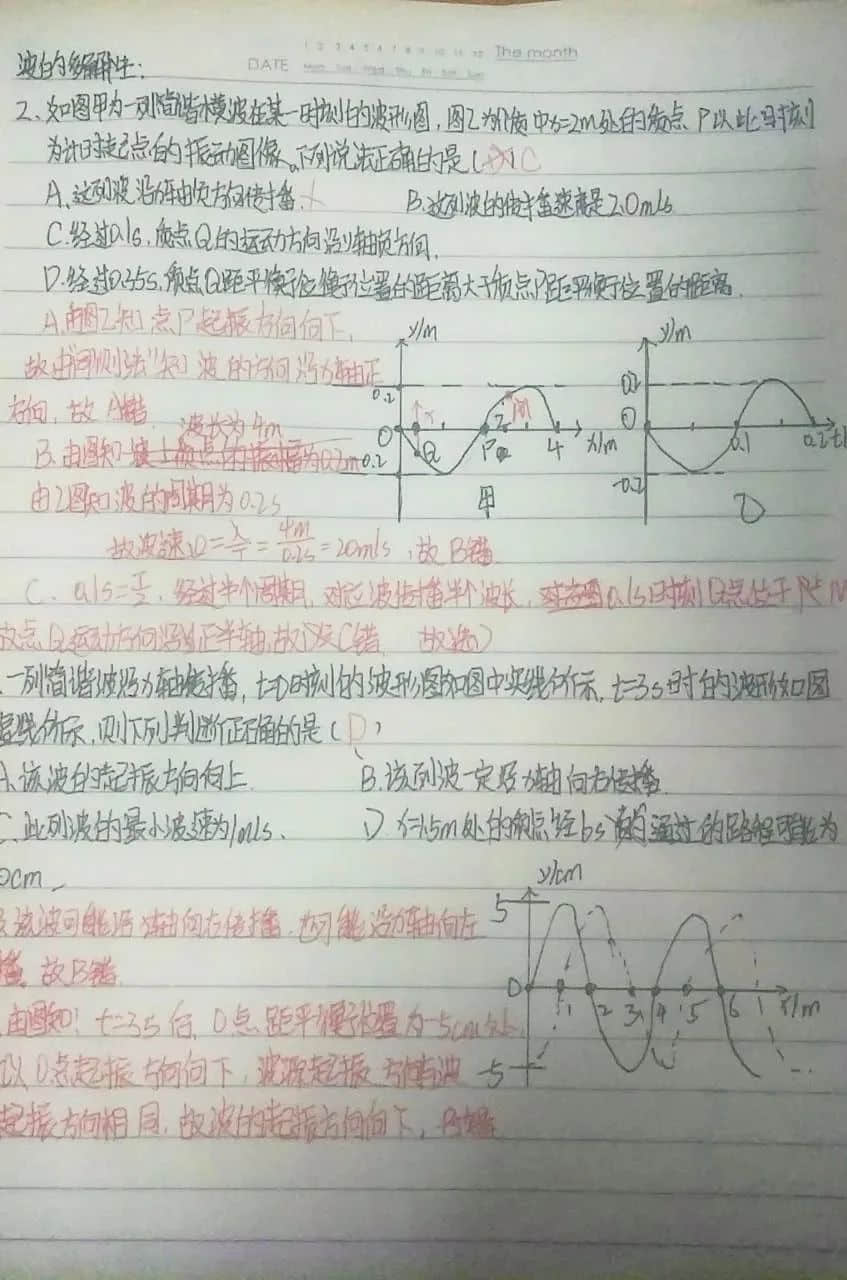 1 2 3 4 5 6 7 8 9 10 11 12 The month
DATE Mon Tue Wed Thu Fri Sat Sun
波的多解性:
2、如图甲为一列简谐横波在某一时刻的波形图,图乙为介质中x=2m处的质点P以此时刻
为计时起点的振动图像。下列说法正确的是( )C
A、这列波沿x轴负方向传播. × B.这列波的传播速度是20m/s
C.经过0.1s,质点Q的运动方向沿y轴负方向.
D.经过0.35s,质点Q距平衡位置的距离大于质点P距平衡位置的距离.
A.由图乙知点P起振方向向下,
故由"同侧法"知波的方向沿x轴正
方向,故A错. 波长为4m
B.由图知
由乙图知波的周期为0.2s
故波速v=λ/T=4m/0.2s=20m/s,故B错
C. 0.1s=T/2,经过半个周期,对应波传播半个波长,
y/m
0.2
O
0.2
Q
P
2
4
x/m
甲
y/m
0.2
O
-0.2
0.1
0.2 t/
乙
一列简谐波沿x轴传播,t=0时刻的波形图如图中实线所示,t=3s时的波形如图
虚线所示,则下列判断正确的是(D)
A.该波的起振方向向上. B.该列波一定沿x轴向右传播.
C.此列波的最小波速为1m/s、 D x=1.5m处的质点经6s 通过的路程可能为
0cm
该波可能沿x轴向右传播,也可能沿x轴向左
播,故B错.
由图知:t=3s后,O点距平衡位置为-5cm处,
以O点起振方向向下,波源起振方向与波
起振方向相同,故波的起振方向向下,
y/cm
5
O
-5
1 2 3 4 5 6 7 x/m